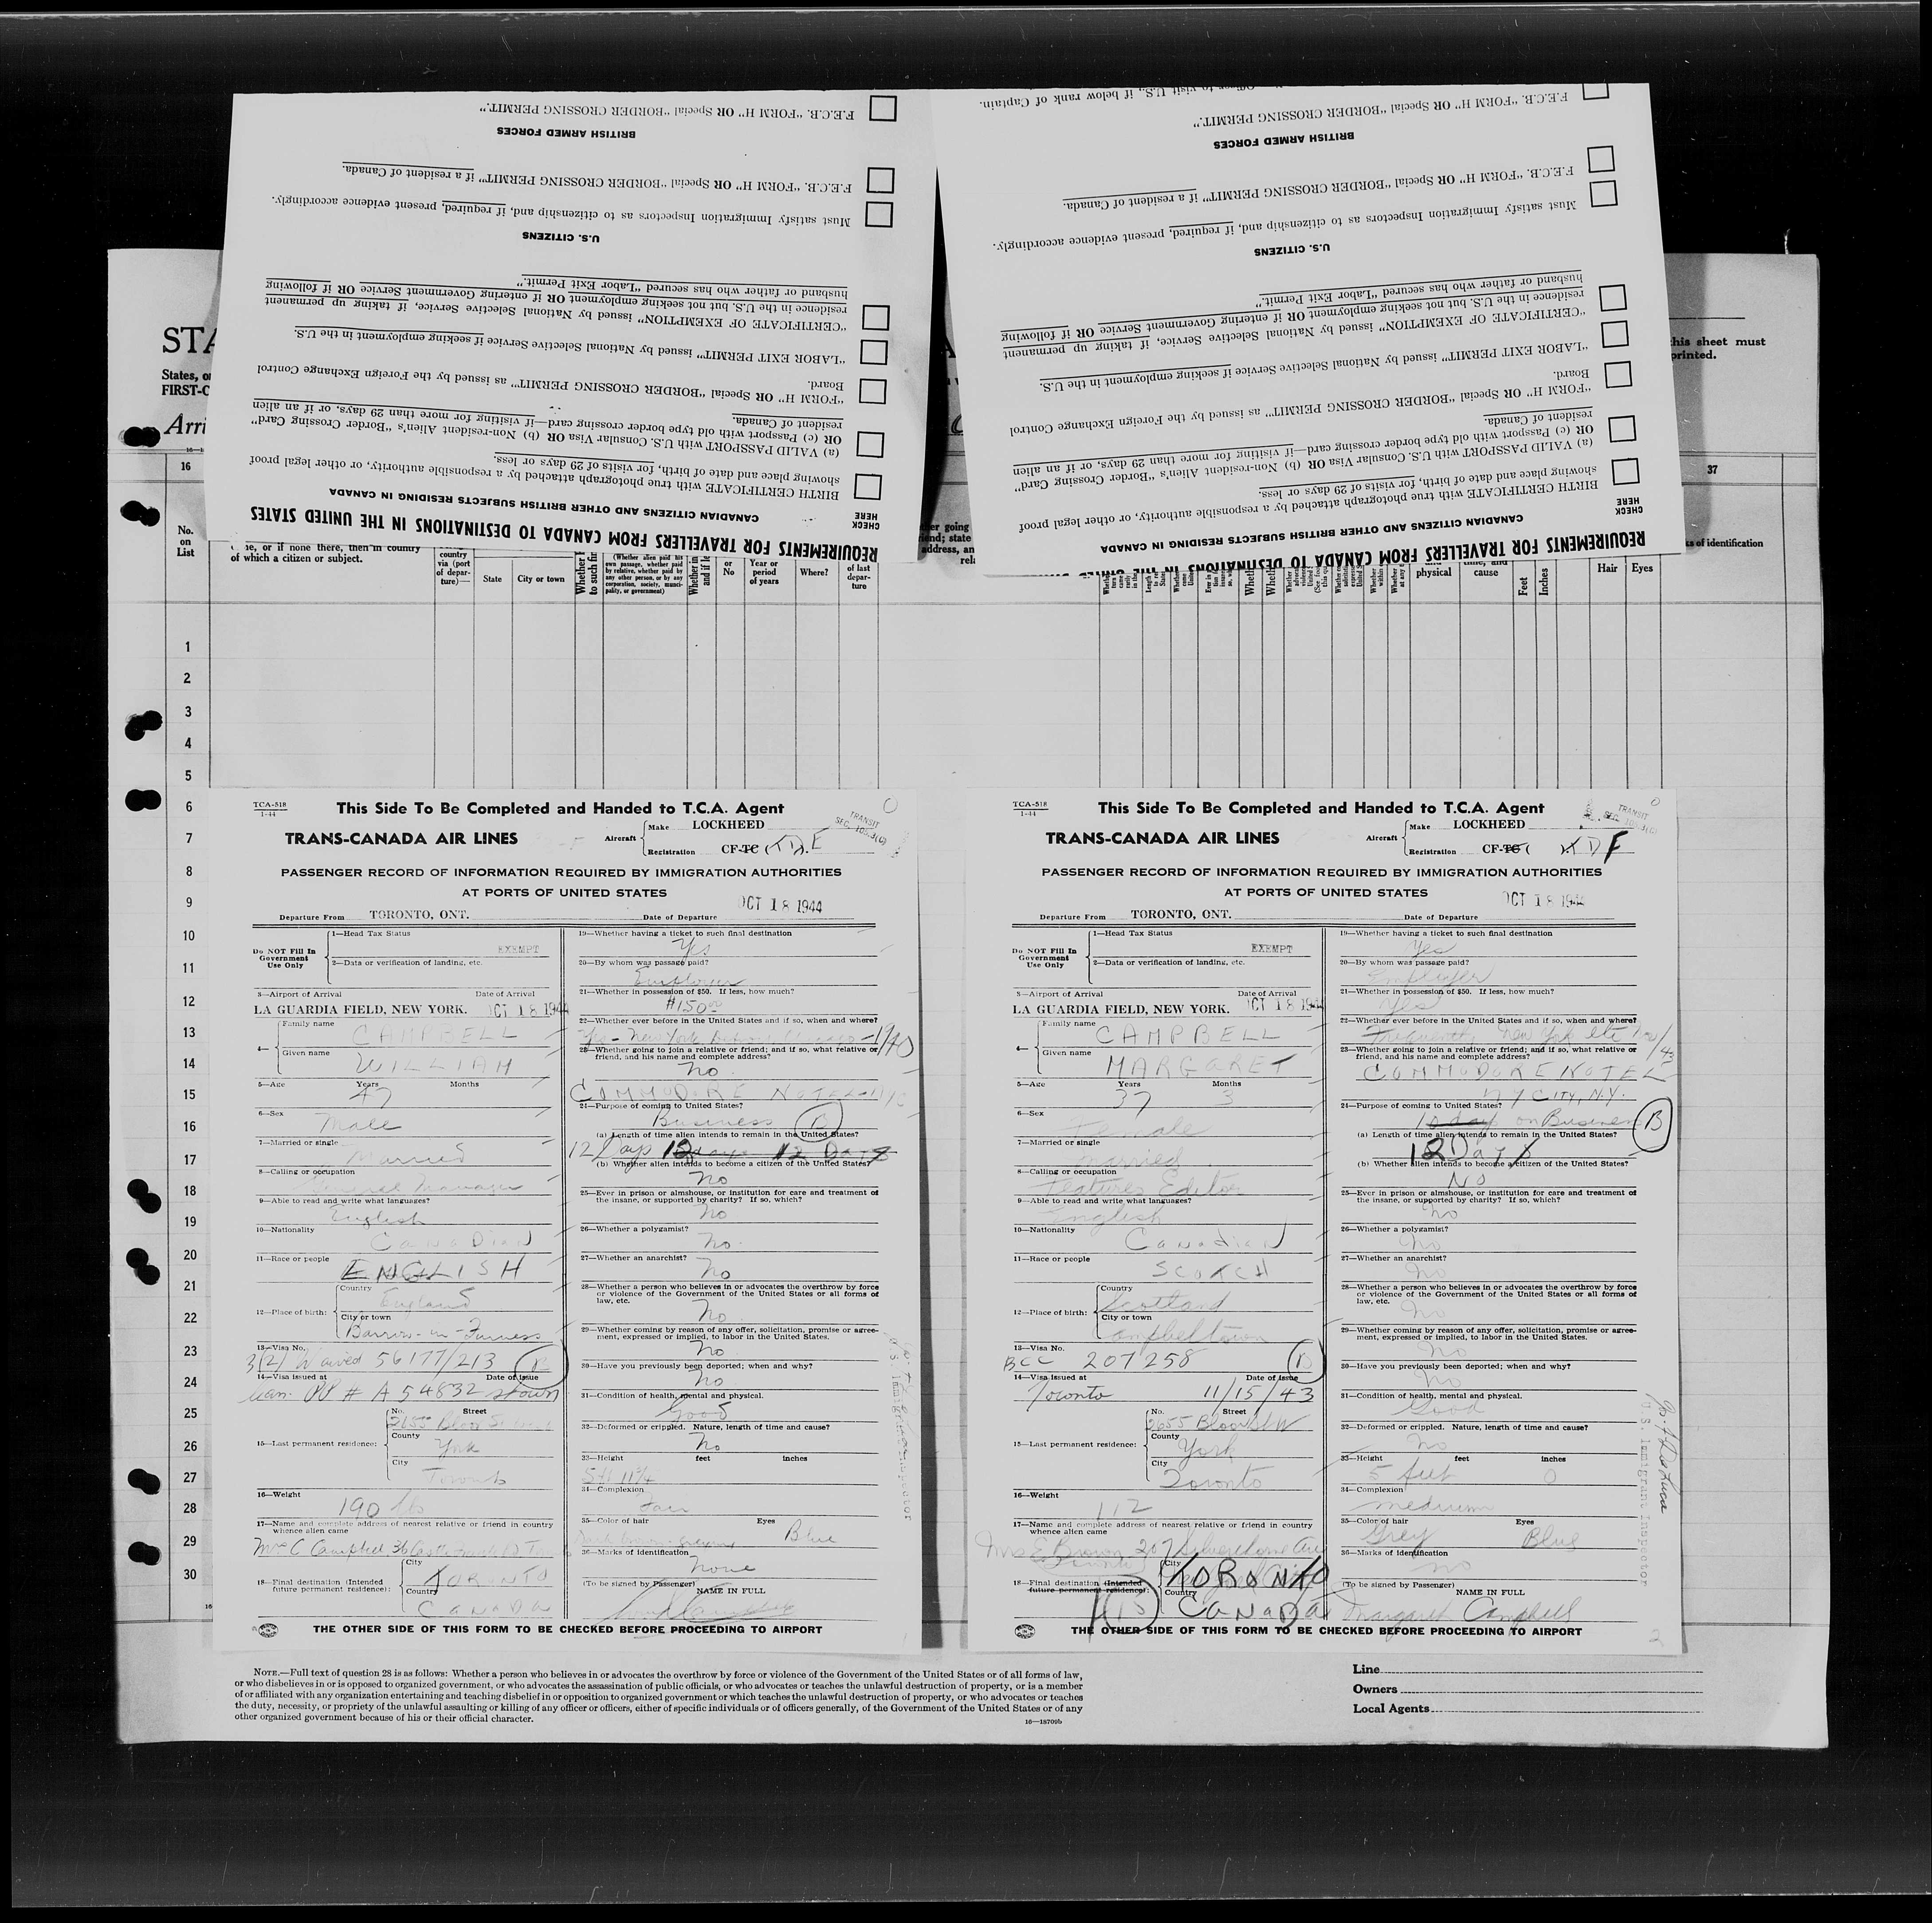 REQUIREMENTS FOR TRAVELLERS FROM CANADA TO DESTINATIONS IN THE UNITED STATES
CHECK
HERE
CANADIAN CITIZENS AND OTHER BRITISH SUBJECTS RESIDING IN CANADA
BIRTH CERTIFICATE with true photograph attached by a responsible authority, or other legal proof
showing place and date of birth, for visits of 29 days or less.
(a) VALID PASSPORT with U.S. Consular Visa OR (b) Non-resident Alien's "Border Crossing Card"
OR (c) Passport with old type border crossing card—if visiting for more than 29 days, or if an alien
resident of Canada.
"FORM H" OR Special "BORDER CROSSING PERMIT" as issued by the Foreign Exchange Control
Board.
"LABOR EXIT PERMIT" issued by National Selective Service if seeking employment in the U.S.
"CERTIFICATE OF EXEMPTION" issued by National Selective Service, if taking up permanent
residence in the U.S. but not seeking employment OR if entering Government Service OR if following
husband or father who has secured "Labor Exit Permit."
U.S. CITIZENS
Must satisfy Immigration Inspectors as to citizenship and, if required, present evidence accordingly.
F.E.C.B. "FORM H" OR Special "BORDER CROSSING PERMIT" if a resident of Canada.
BRITISH ARMED FORCES
F.E.C.B. "FORM H" OR Special "BORDER CROSSING PERMIT."
REQUIREMENTS FOR TRAVELLERS FROM CANADA TO DESTINATIONS IN THE UNITED STATES
CHECK
HERE
CANADIAN CITIZENS AND OTHER BRITISH SUBJECTS RESIDING IN CANADA
BIRTH CERTIFICATE with true photograph attached by a responsible authority, or other legal proof
showing place and date of birth, for visits of 29 days or less.
(a) VALID PASSPORT with U.S. Consular Visa OR (b) Non-resident Alien's "Border Crossing Card"
OR (c) Passport with old type border crossing card—if visiting for more than 29 days, or if an alien
resident of Canada.
"FORM H" OR Special "BORDER CROSSING PERMIT" as issued by the Foreign Exchange Control
Board.
"LABOR EXIT PERMIT" issued by National Selective Service if seeking employment in the U.S.
"CERTIFICATE OF EXEMPTION" issued by National Selective Service, if taking up permanent
residence in the U.S. but not seeking employment OR if entering Government Service OR if following
husband or father who has secured "Labor Exit Permit."
U.S. CITIZENS
Must satisfy Immigration Inspectors as to citizenship and, if required, present evidence accordingly.
F.E.C.B. "FORM H" OR Special "BORDER CROSSING PERMIT" if a resident of Canada.
BRITISH ARMED FORCES
F.E.C.B. "FORM H" OR Special "BORDER CROSSING PERMIT."
to visit U.S., if below rank of Captain.
STA
States, o
FIRST-C
Arri
this sheet must
printed.
16
37
No.
on
List
or if none there, then in country
of which a citizen or subject.
country
via (port
of depar-
ture)—
State
City or town
(Whether alien paid his
own passage, whether paid
by relative, whether paid by
any other person, or by any
corporation, society, munici-
pality, or government)
or
No
Year or
period
of years
Where?
of last
depar-
ture
physical
cause
Feet
Inches
Hair
Eyes
of identification
1
2
3
4
5
6
7
8
9
10
11
12
13
14
15
16
17
18
19
20
21
22
23
24
25
26
27
28
29
30
TCA-518
1-44
This Side To Be Completed and Handed to T.C.A. Agent
TRANS-CANADA AIR LINES
Aircraft
Make LOCKHEED
Registration CF-TC
TRANSIT
PASSENGER RECORD OF INFORMATION REQUIRED BY IMMIGRATION AUTHORITIES
AT PORTS OF UNITED STATES
Departure From TORONTO, ONT. Date of Departure OCT 18 1944
Do NOT Fill In
Government
Use Only
1—Head Tax Status EXEMPT
2—Data or verification of landing, etc.
3—Airport of Arrival Date of Arrival
LA GUARDIA FIELD, NEW YORK. OCT 18 1944
4— Family name CAMPBELL
Given name WILLIAM
5—Age Years Months
47
6—Sex Male
7—Married or single Married
8—Calling or occupation General Manager
9—Able to read and write what languages?
English
10—Nationality Canadian
11—Race or people ENGLISH
12—Place of birth: Country England
City or town
Barrow-in-Furness
13—Visa No.
3(2) Waived 56177/213 B
14—Visa issued at Date of issue
PP # A 54832 shown
15—Last permanent residence: No. Street
Bloor St
County York
City Toronto
16—Weight 190 lbs
17—Name and complete address of nearest relative or friend in country
whence alien came
Mrs C Campbell 36
18—Final destination (Intended
future permanent residence):
City TORONTO
Country CANADA
19—Whether having a ticket to such final destination
Yes
20—By whom was passage paid?
Employer
21—Whether in possession of $50. If less, how much?
$150.00
22—Whether ever before in the United States and if so, when and where?
Yes - New York 1940
23—Whether going to join a relative or friend; and if so, what relative or
friend, and his name and complete address?
No
COMMODORE HOTEL NYC
24—Purpose of coming to United States?
Business B
(a) Length of time alien intends to remain in the United States?
12 Days 12 days 12 Days
(b) Whether alien intends to become a citizen of the United States?
No
25—Ever in prison or almshouse, or institution for care and treatment of
the insane, or supported by charity? If so, which?
No
26—Whether a polygamist?
No
27—Whether an anarchist?
No
28—Whether a person who believes in or advocates the overthrow by force
or violence of the Government of the United States or all forms of
law, etc.
No
29—Whether coming by reason of any offer, solicitation, promise or agree-
ment, expressed or implied, to labor in the United States.
No
30—Have you previously been deported; when and why?
No
31—Condition of health, mental and physical.
Good
32—Deformed or crippled. Nature, length of time and cause?
No
33—Height feet inches
5 ft 11 3/4
34—Complexion
Fair
35—Color of hair Eyes
Blue
36—Marks of identification
None
(To be signed by Passenger) NAME IN FULL
THE OTHER SIDE OF THIS FORM TO BE CHECKED BEFORE PROCEEDING TO AIRPORT
U.S. Immigrant Inspector
TCA-518
1-44
This Side To Be Completed and Handed to T.C.A. Agent
TRANS-CANADA AIR LINES
Aircraft
Make LOCKHEED
Registration CF-TC
TRANSIT
PASSENGER RECORD OF INFORMATION REQUIRED BY IMMIGRATION AUTHORITIES
AT PORTS OF UNITED STATES
Departure From TORONTO, ONT. Date of Departure OCT 18 1944
Do NOT Fill In
Government
Use Only
1—Head Tax Status EXEMPT
2—Data or verification of landing, etc.
3—Airport of Arrival Date of Arrival
LA GUARDIA FIELD, NEW YORK. OCT 18 1944
4— Family name CAMPBELL
Given name MARGARET
5—Age Years Months
37 3
6—Sex Female
7—Married or single Married
8—Calling or occupation
Features Editor
9—Able to read and write what languages?
English
10—Nationality Canadian
11—Race or people SCOTCH
12—Place of birth: Country
Scotland
City or town
Campbeltown
13—Visa No.
BCC 207258 B
14—Visa issued at Date of issue
Toronto 11/15/43
15—Last permanent residence: No. Street
2655 Bloor St W
County York
City Toronto
16—Weight 112
17—Name and complete address of nearest relative or friend in country
whence alien came
Mrs E Brown 207 Silverthorn Ave
Toronto
18—Final destination (Intended
future permanent residence):
City TORONTO
Country CANADA
19—Whether having a ticket to such final destination
Yes
20—By whom was passage paid?
Employer
21—Whether in possession of $50. If less, how much?
Yes
22—Whether ever before in the United States and if so, when and where?
Frequently New York etc
23—Whether going to join a relative or friend; and if so, what relative or
friend, and his name and complete address?
COMMODORE HOTEL
NY CITY, N.Y.
24—Purpose of coming to United States?
on Business B
(a) Length of time alien intends to remain in the United States?
12 Days
(b) Whether alien intends to become a citizen of the United States?
No
25—Ever in prison or almshouse, or institution for care and treatment of
the insane, or supported by charity? If so, which?
No
26—Whether a polygamist?
No
27—Whether an anarchist?
No
28—Whether a person who believes in or advocates the overthrow by force
or violence of the Government of the United States or all forms of
law, etc.
No
29—Whether coming by reason of any offer, solicitation, promise or agree-
ment, expressed or implied, to labor in the United States.
No
30—Have you previously been deported; when and why?
No
31—Condition of health, mental and physical.
Good
32—Deformed or crippled. Nature, length of time and cause?
No
33—Height feet inches
5 feet 0
34—Complexion
medium
35—Color of hair Eyes
Grey Blue
36—Marks of identification
no
(To be signed by Passenger) NAME IN FULL
Margaret Campbell
THE OTHER SIDE OF THIS FORM TO BE CHECKED BEFORE PROCEEDING TO AIRPORT
2
U.S. Immigrant Inspector
NOTE.—Full text of question 28 is as follows: Whether a person who believes in or advocates the overthrow by force or violence of the Government of the United States or of all forms of law,
or who disbelieves in or is opposed to organized government, or who advocates the assassination of public officials, or who advocates or teaches the unlawful destruction of property, or is a member
of or affiliated with any organization entertaining and teaching disbelief in or opposition to organized government or which teaches the unlawful destruction of property, or who advocates or teaches
the duty, necessity, or propriety of the unlawful assaulting or killing of any officer or officers, either of specific individuals or of officers generally, of the Government of the United States or of any
other organized government because of his or their official character.
16—18709b
Line
Owners
Local Agents